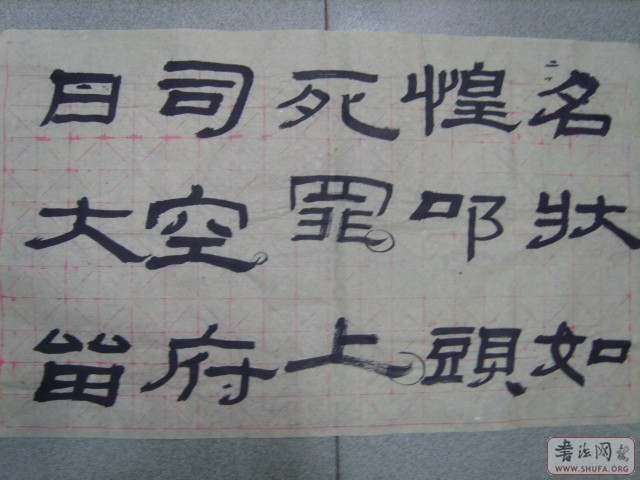 名狀如
惶叩頭
死罪上
司空府
曰大
書法网
WWW.SHUFA.ORG